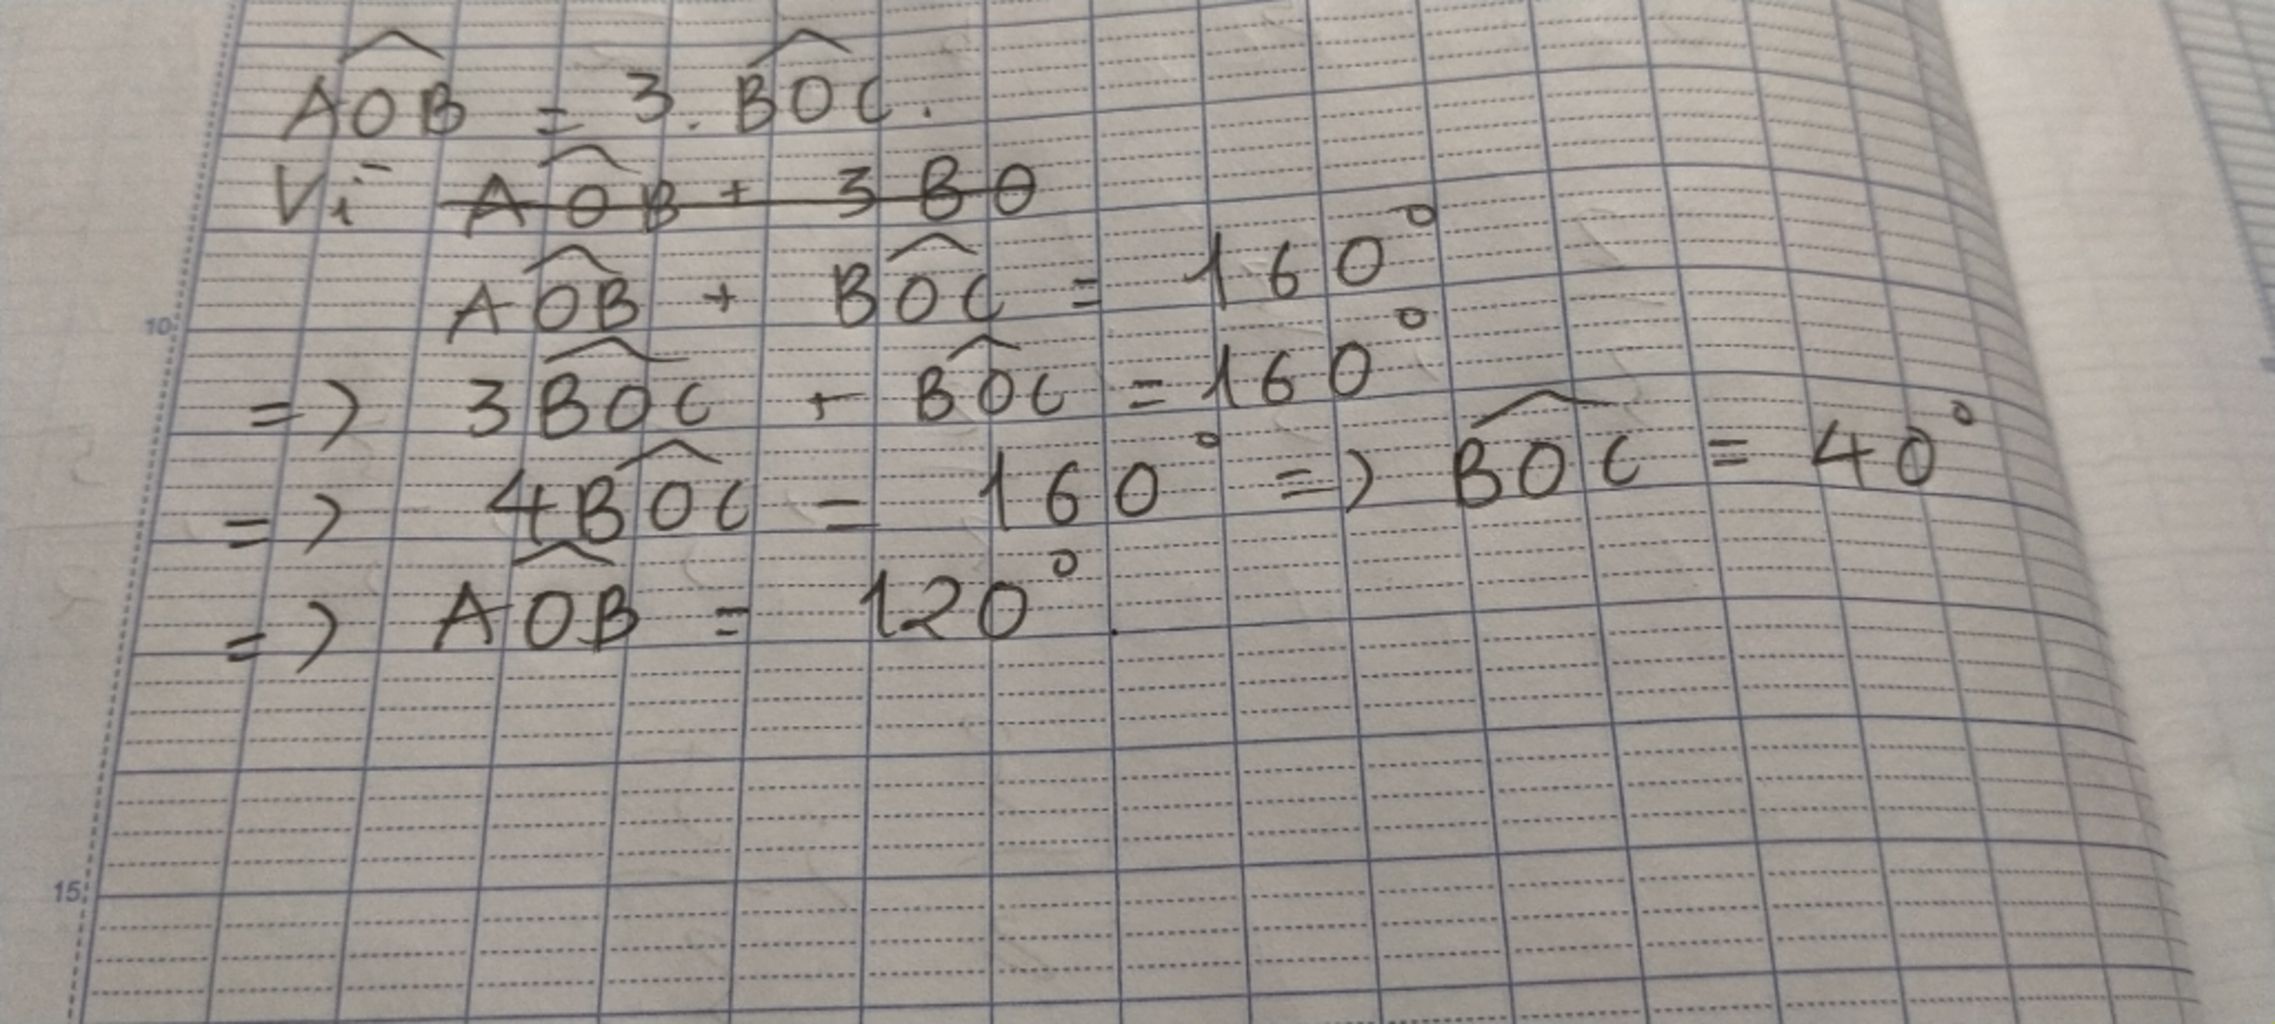 AOB̂ = 3. BOĈ.
Vì AOB̂ + 3 BO
AOB̂ + BOĈ = 160°
=> 3BOĈ + BOĈ = 160°
=> 4BOĈ = 160° => BOĈ = 40°
=> AOB̂ = 120°.
10
15